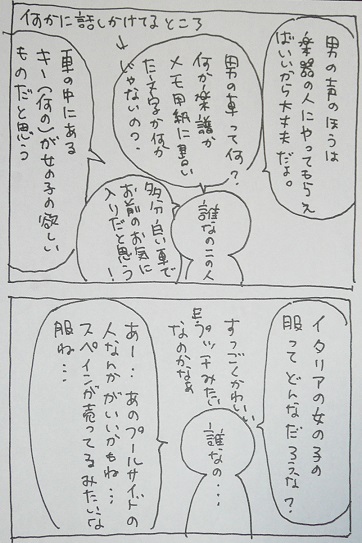 何かに話しかけてるところ
男の声のほうは
楽器の人にやってもらえ
ばいいから大丈夫だよ。
男の車って何？
何か楽譜か
メモ用紙に書い
た文字か何か
じゃないの？
車の中にある
キー(何の)が女の子の欲しい
ものだと思う
誰なのこの人
多分白い車で
お前のお気に
入りだと思う！
イタリアの女の子の
服ってどんなだろぇな？
すっごくかわいい
プッチみたい
なのかなぁ
誰なの…
あー…あのプールサイドの
人なんかがいいかもね…
スペインが売ってるみたいな
服ね…